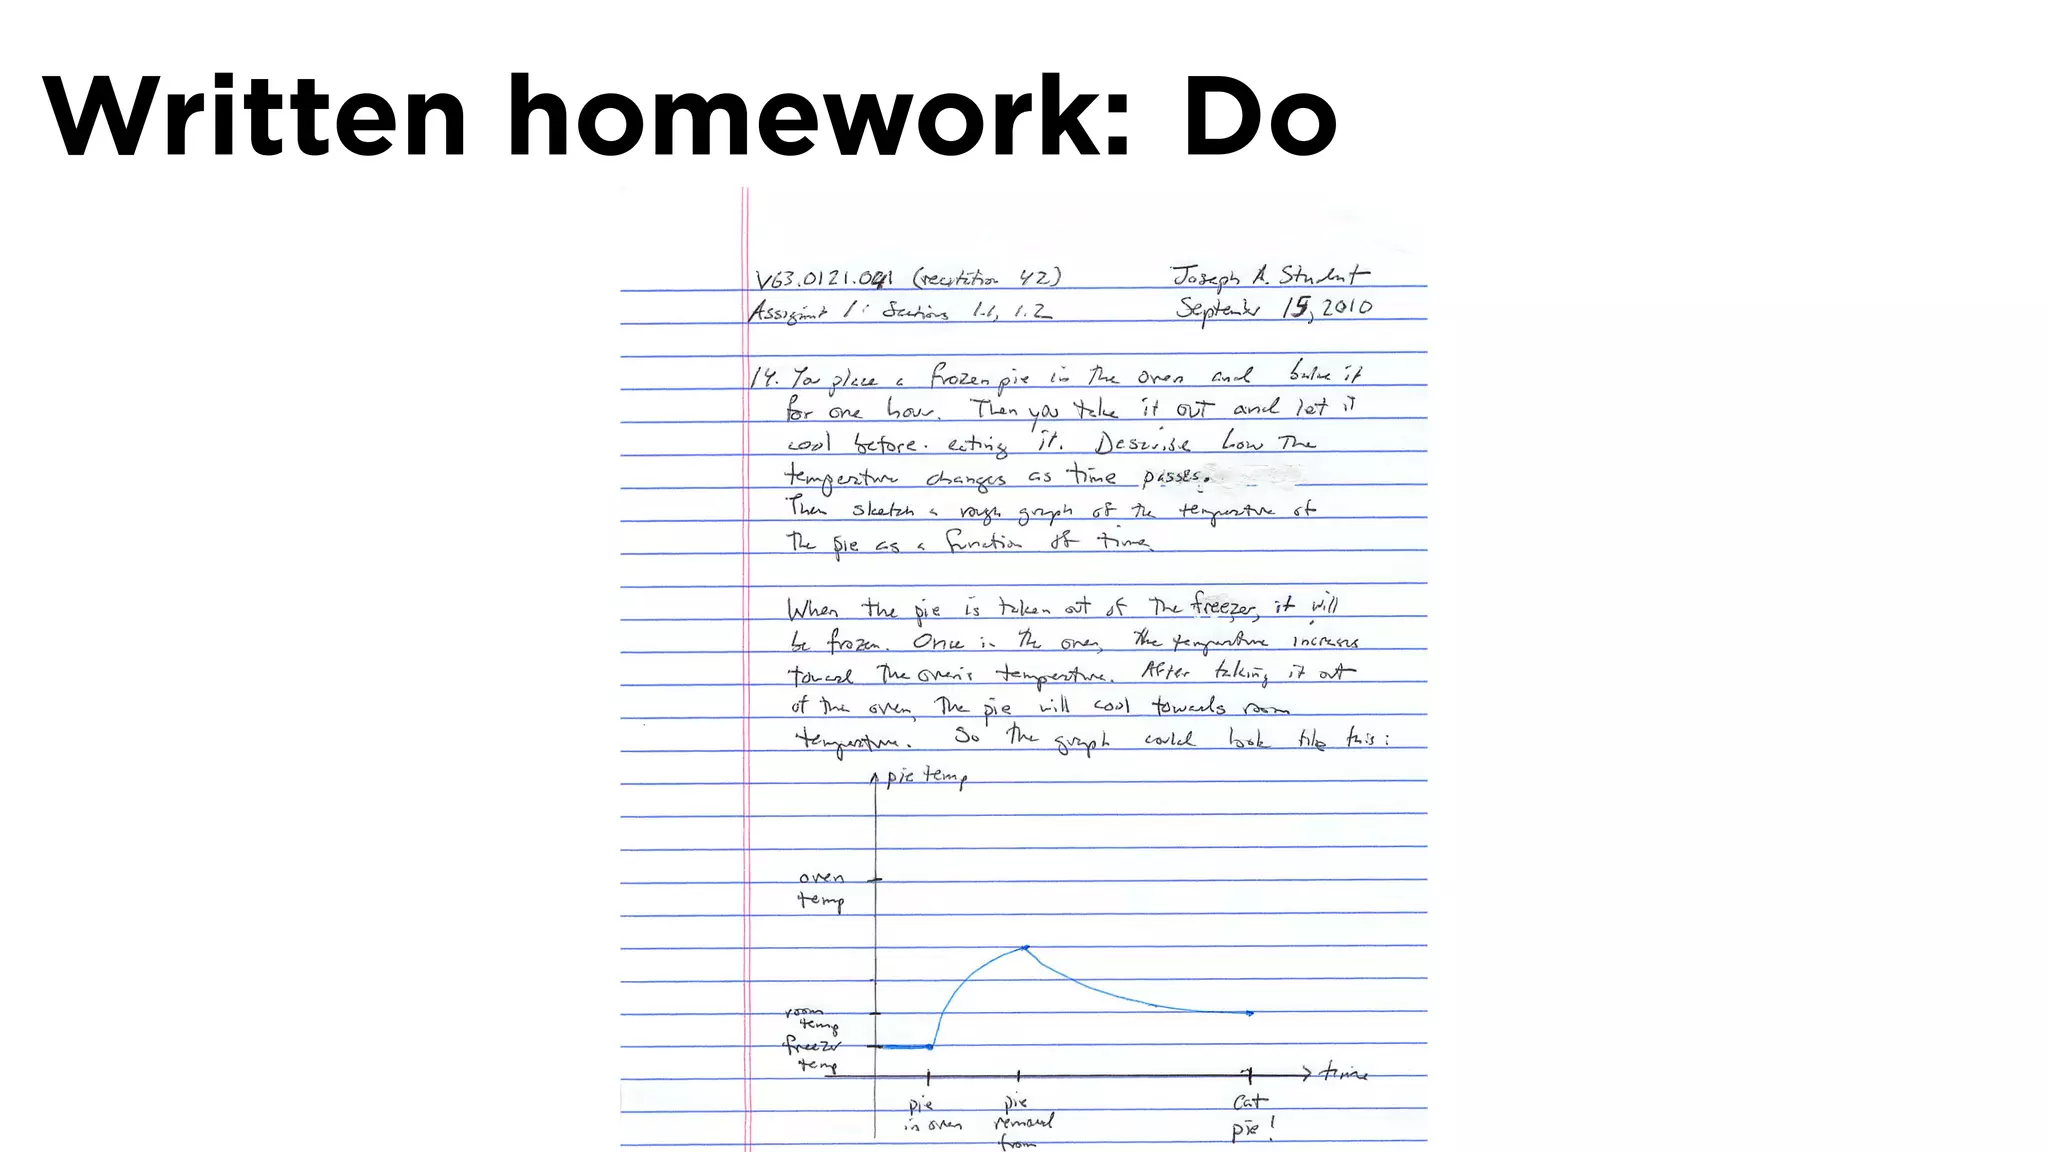 Written homework: Do
V63.0121.041 (recitation 42) Joseph A. Student
Assignment 1: Sections 1.1, 1.2 September 15, 2010
14. You place a frozen pie in the oven and bake it
for one hour. Then you take it out and let it
cool before eating it. Describe how the
temperature changes as time passes.
Then sketch a rough graph of the temperature of
the pie as a function of time.
When the pie is taken out of the freezer, it will
be frozen. Once in the oven, the temperature increases
toward the oven's temperature. After taking it out
of the oven, the pie will cool towards room
temperature. So the graph could look like this:
pie temp
oven
temp
room
temp
freezer
temp
time
pie
in oven
pie
removed
from
Eat
pie!